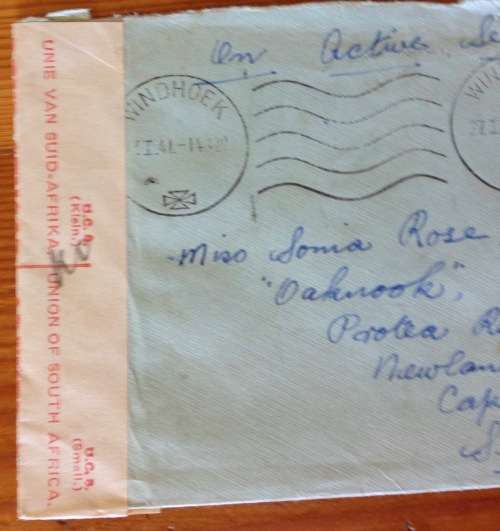 UNIE VAN SUID-AFRIKA
UNION OF SOUTH AFRICA.
U.C.S.
(Klein.)
U.C.S.
(Small.)
On Active Se
WINDHOEK
I.41-14
Miss Sonia Rose
"Oaknook",
Protea R
Newlan
Cap